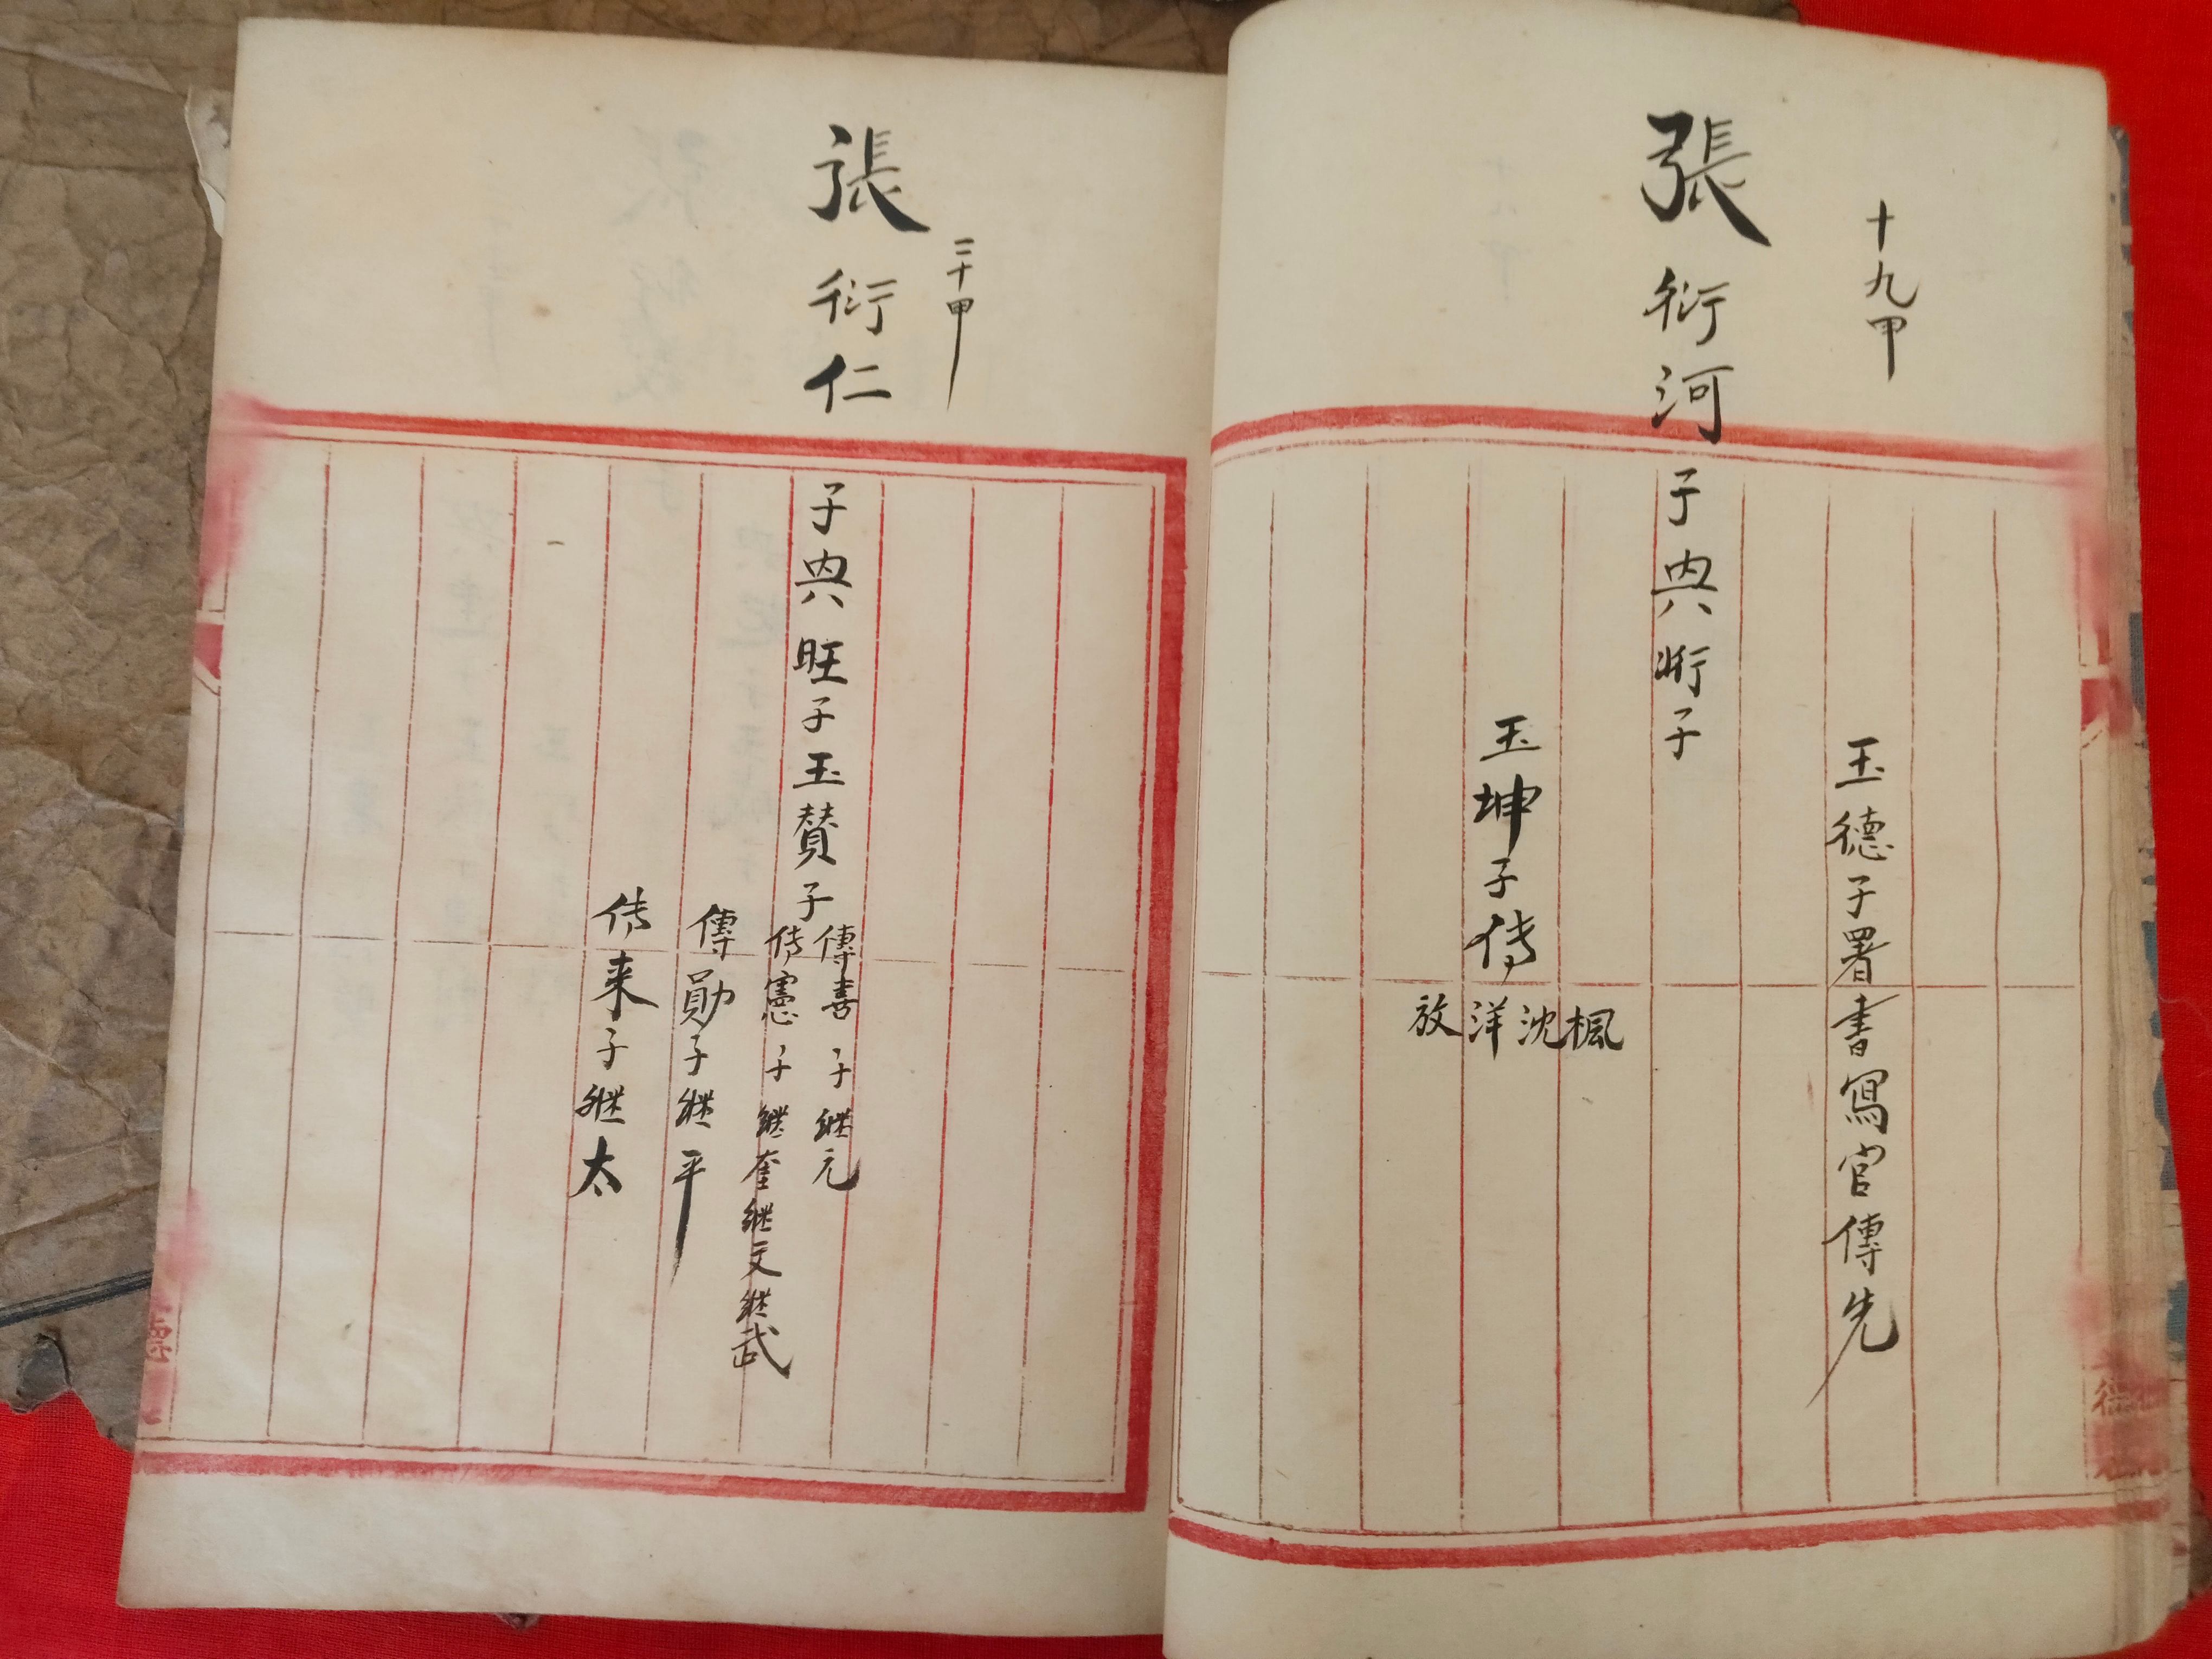 十九甲
張衍河
子典珩子
玉德子署書寫官傳先
玉坤子传
楓沈洋放
三十甲
張衍仁
子典旺子玉賛子
傳喜子継元
传憲子継奎継文継武
傳勛子継平
传来子継太